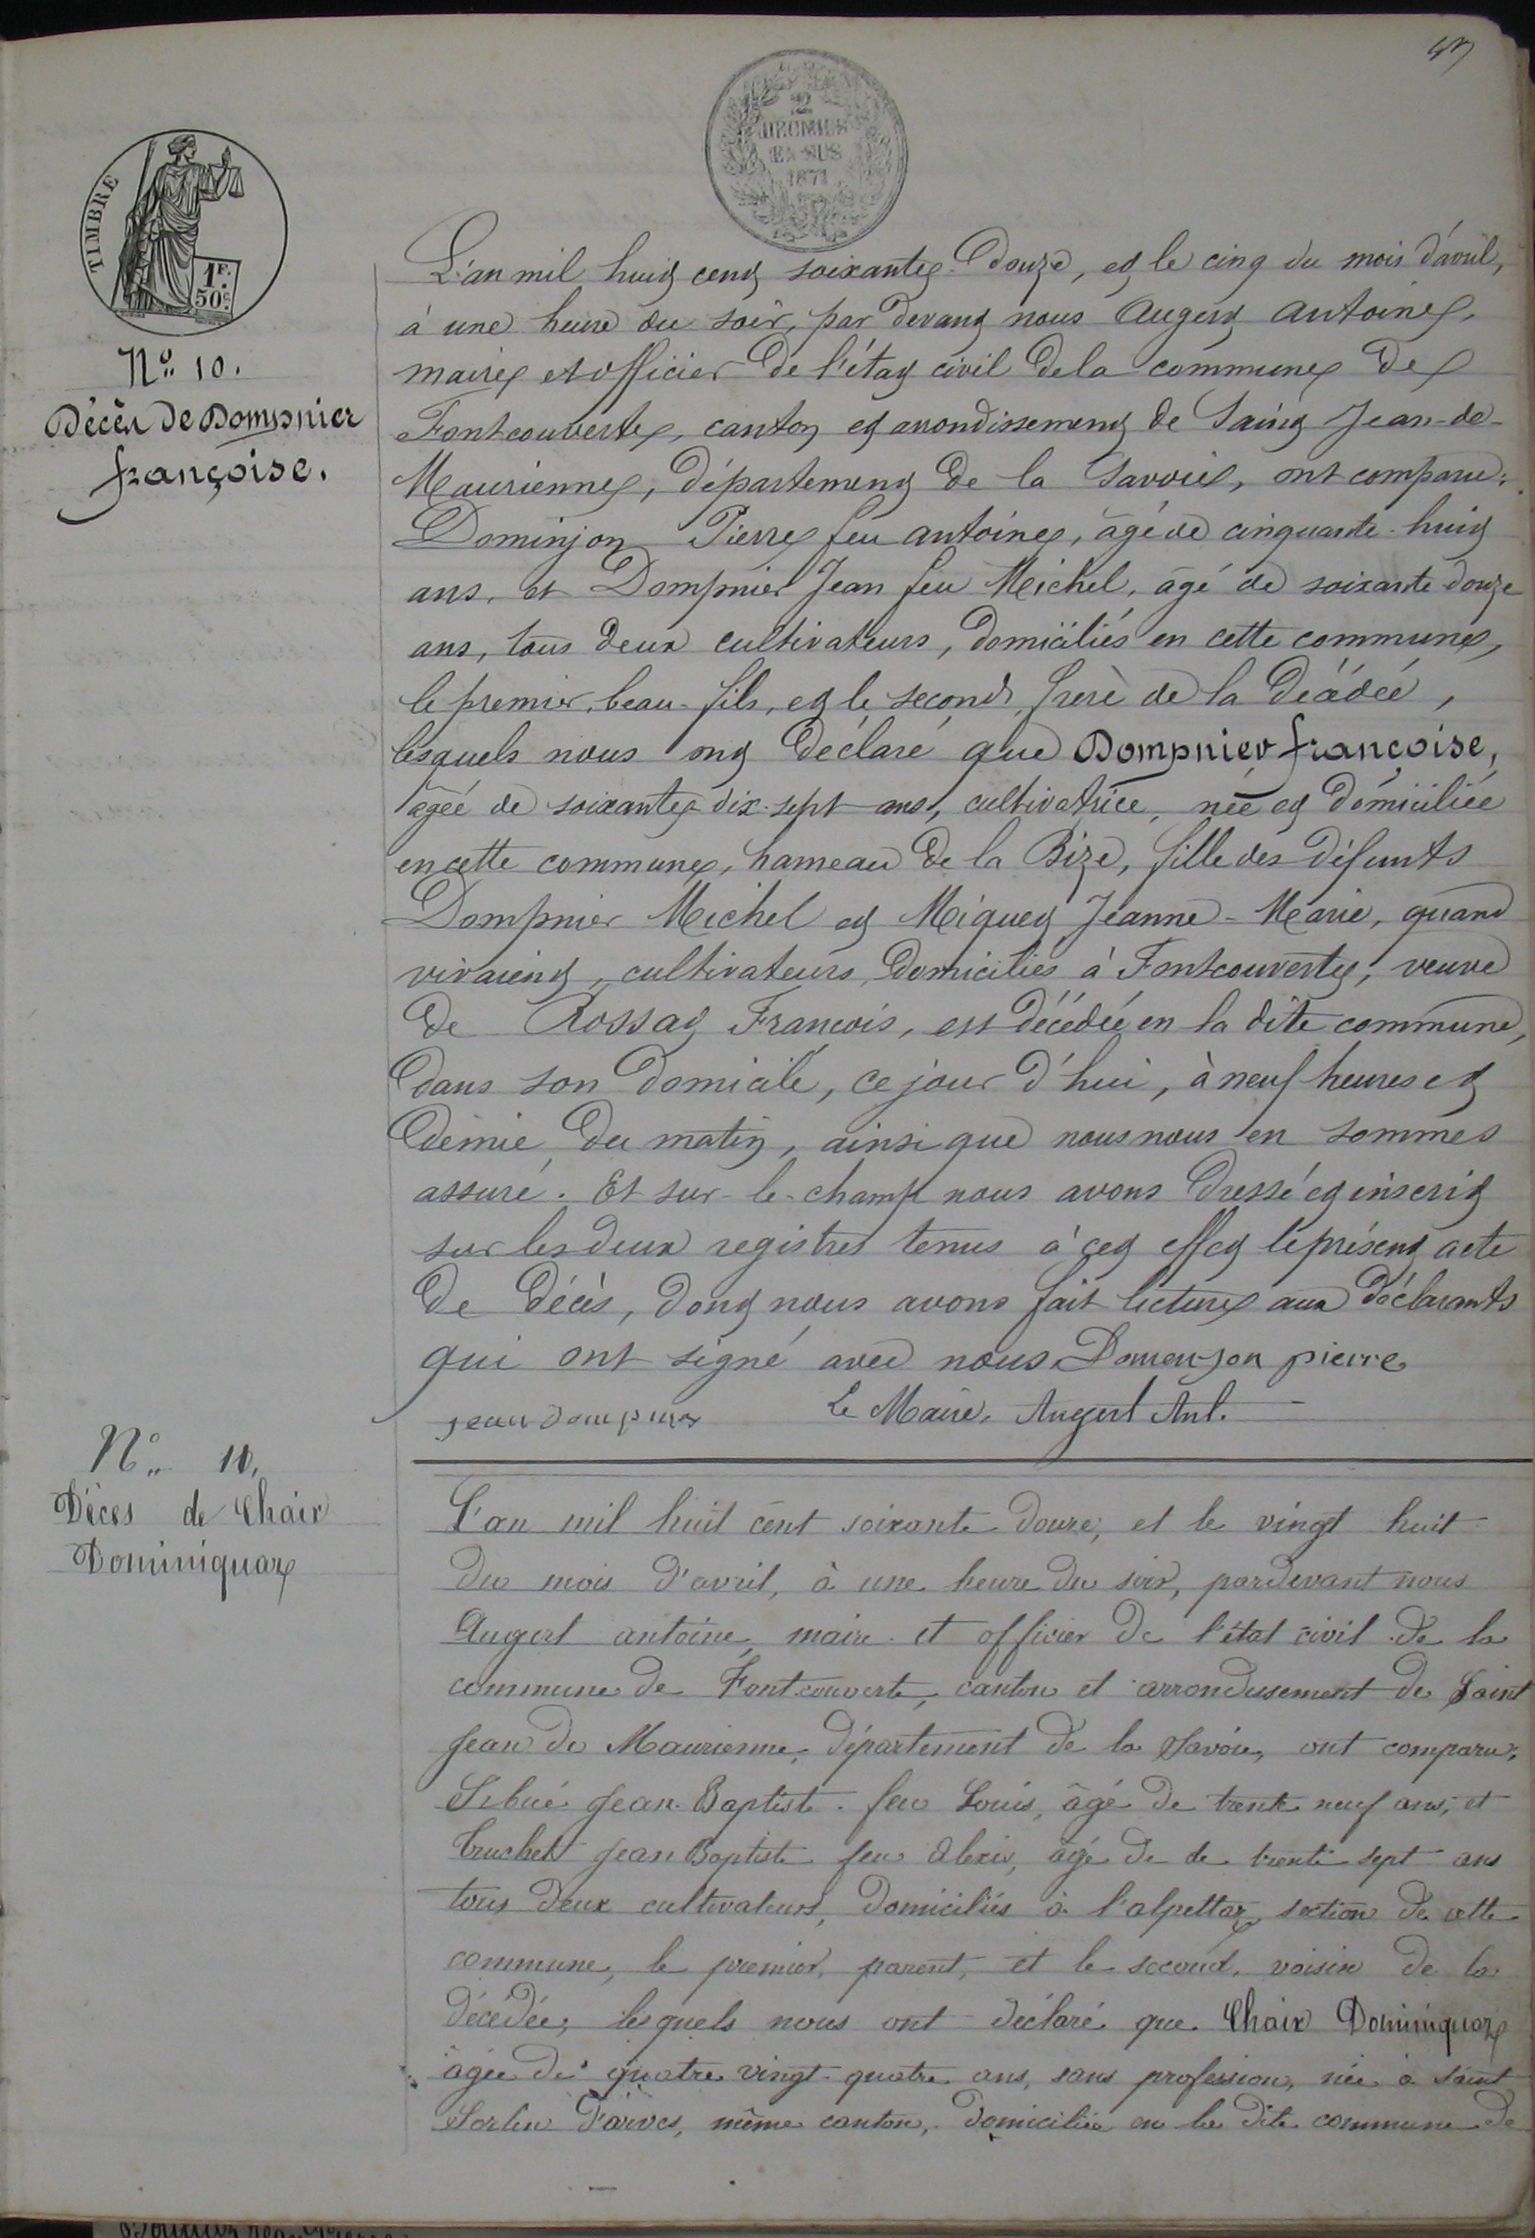 43
2
DECIMES
EN SUS
1871
TIMBRE
1F.
50c.
N° 10.
Décès de Dompnier
françoise.
L'an mil huit cent soixante-douze, et le cinq du mois d'avril,
à une heure du soir, par devant nous Augert Antoine,
maire et officier de l'état civil de la commune de
Fontcouverte, canton et arrondissement de Saint Jean-de-
Maurienne, département de la Savoie, ont comparu:
Dominjon Pierre feu antoine, âgé de cinquante-huit
ans, et Dompnier Jean feu Michel, âgé de soixante-douze
ans, tous deux cultivateurs, domiciliés en cette commune,
le premier, beau-fils, et le second, frère de la décédée,
lesquels nous ont déclaré que Dompnier françoise,
âgée de soixante-dix-sept ans, cultivatrice, née et domiciliée
en cette commune, hameau de la Bize, fille des défunts
Dompnier Michel et Miquet Jeanne-Marie, quand
vivaient, cultivateurs, domiciliés à Fontcouverte, veuve
de Rossat François, est décédée en la dite commune,
dans son domicile, ce jour d'hui, à neuf heures et
demie du matin, ainsi que nous nous en sommes
assuré. Et sur-le-champ nous avons dressé et inscrit
sur les deux registres tenus à cet effet le présent acte
de décès, dont nous avons fait lecture aux déclarants
qui ont signé avec nous. Domenjon pierre
jean dompnier Le Maire, Augert Ant.
N° 11,
Décès de Chaix
Dominiquaz
L'an mil huit cent soixante douze, et le vingt huit
du mois d'avril, à une heure du soir, pardevant nous
Augert antoine, maire et officier de l'état civil de la
commune de Fontcouverte, canton et arrondissement de Saint
Jean de Maurienne, département de la Savoie, ont comparu:
Sibué Jean-Baptiste feu Louis, âgé de trente neuf ans, et
Truchet Jean Baptiste feu Alexis, âgé de de trente sept ans
tous deux cultivateurs, domiciliés à l'alpettaz, section de cette
commune, le premier, parent, et le second, voisin de la
décédée, lesquels nous ont déclaré que Chaix Dominiquaz
âgée de quatre vingt-quatre ans, sans profession, née à Saint
Sorlin d'arves, même canton, domiciliée en la dite commune de